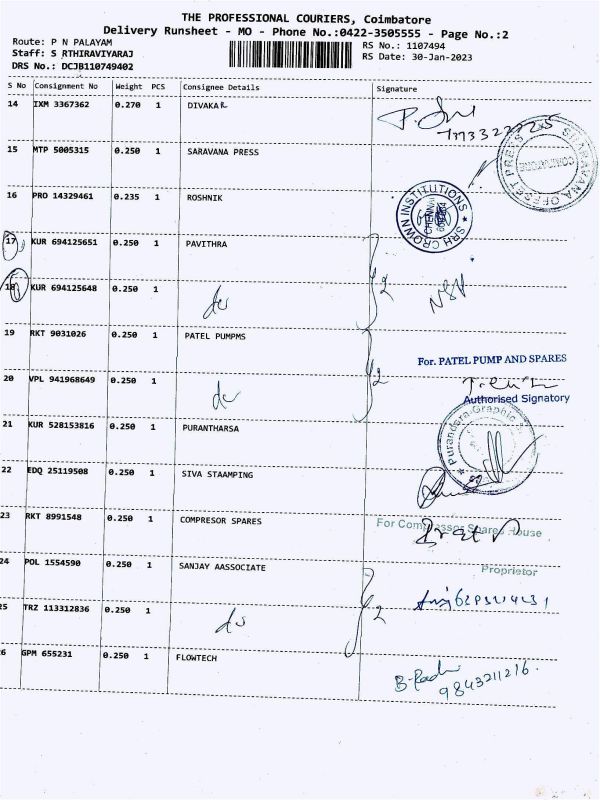 THE PROFESSIONAL COURIERS, Coimbatore
Delivery Runsheet - MO - Phone No.:0422-3505555 - Page No.:2
Route: P N PALAYAM
RS No.: 1107494
Staff: S RTHIRAVIYARAJ
RS Date: 30-Jan-2023
DRS No.: DCJB110749402
S No Consignment No Weight PCS Consignee Details Signature
14 IXM 3367362 0.270 1 DIVAKAR
15 MTP 5005315 0.250 1 SARAVANA PRESS
SARAVANA OFFSET PRESS
COIMBATORE
16 PRO 14329461 0.235 1 ROSHNIK
SRH CROWN INSTITUTIONS
CHENNAI
17 KUR 694125651 0.250 1 PAVITHRA
2
18 KUR 694125648 0.250 1 do
19 RKT 9031026 0.250 1 PATEL PUMPMS
For. PATEL PUMP AND SPARES
2
20 VPL 941968649 0.250 1 do
Authorised Signatory
21 KUR 528153816 0.250 1 PURANTHARSA
Purandara Graphic
22 EDQ 25119508 0.250 1 SIVA STAAMPING
23 RKT 8991548 0.250 1 COMPRESOR SPARES
For Compressor Spares House
24 POL 1554590 0.250 1 SANJAY AASSOCIATE
Proprietor
2
25 TRZ 113312836 0.250 1 do
26 GPM 655231 0.250 1 FLOWTECH
9843211216